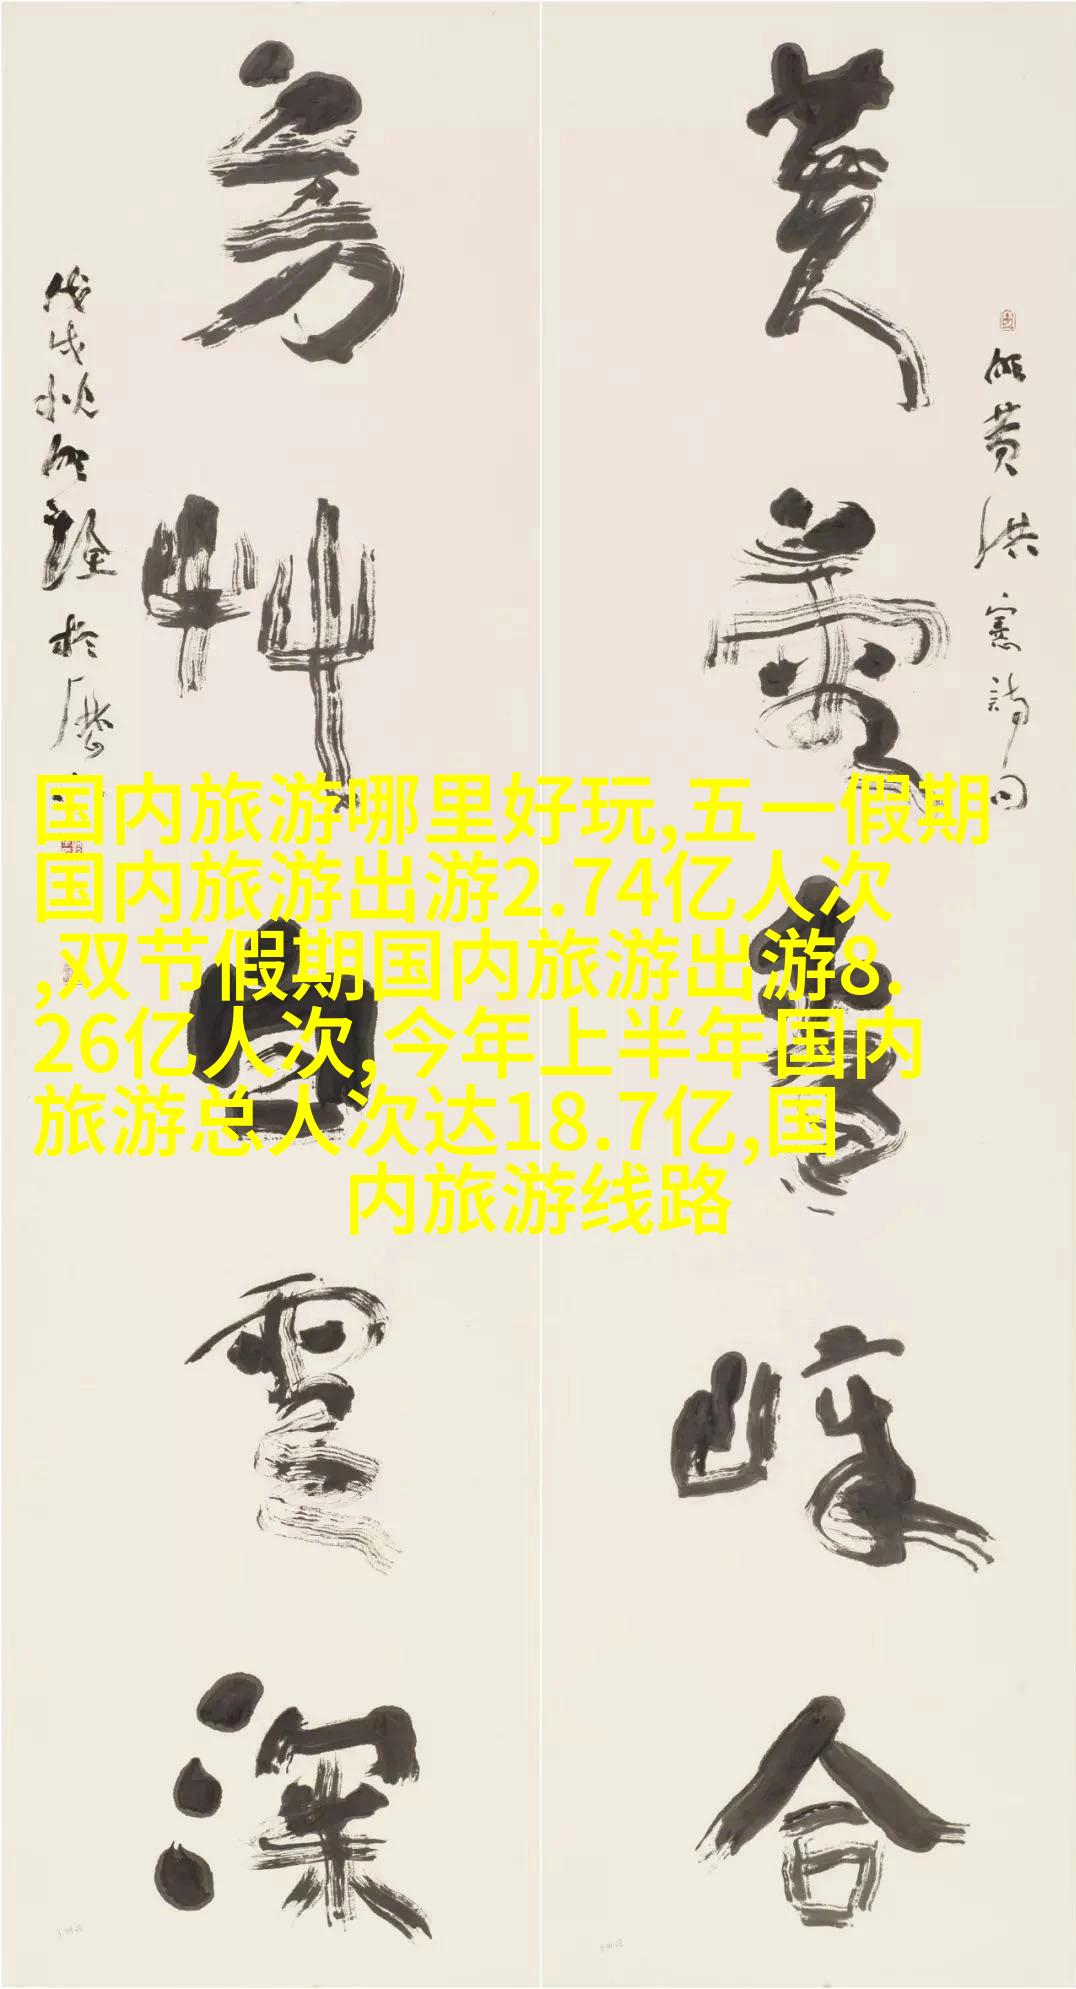 国内旅游哪里好玩,五一假期
国内旅游出游2.74亿人次
,双节假期国内旅游出游8.
26亿人次,今年上半年国内
旅游总人次达18.7亿,国
内旅游线路
青嶂合
黄洪憲詩句
艸白雲深
戊戌秋